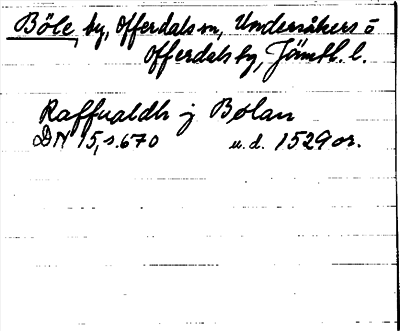 Böle, by, Offerdals sn, Undersåkers o
Offerdals by, Jämtl. l.
Raffualdh j Bølan
DN 15, s. 670 u.d. 1529 or.